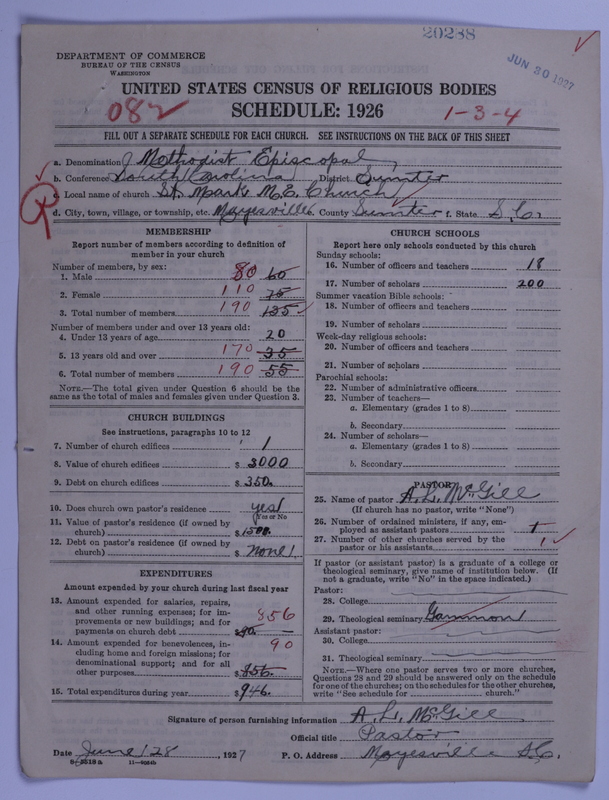 20288
JUN 30 1927
DEPARTMENT OF COMMERCE
BUREAU OF THE CENSUS
WASHINGTON
UNITED STATES CENSUS OF RELIGIOUS BODIES
082 SCHEDULE: 1926 1-3-4
FILL OUT A SEPARATE SCHEDULE FOR EACH CHURCH. SEE INSTRUCTIONS ON THE BACK OF THIS SHEET
a. Denomination Methodist Episcopal
b. Conference South Carolina District Sumter
c. Local name of church St. Mark M.E. Church
d. City, town, village, or township, etc. Mayesville e. County Sumter f. State S.C.
MEMBERSHIP
Report number of members according to definition of
member in your church
Number of members, by sex:
1. Male 80 60
2. Female 110 75
3. Total number of members 190 135
Number of members under and over 13 years old:
4. Under 13 years of age 20
5. 13 years old and over 170 35
6. Total number of members 190 55
NOTE.—The total given under Question 6 should be the
same as the total of males and females given under Question 3.
CHURCH BUILDINGS
See instructions, paragraphs 10 to 12
7. Number of church edifices 1
8. Value of church edifices $ 3000
9. Debt on church edifices $ 350.
10. Does church own pastor's residence yes
(Yes or No
11. Value of pastor's residence (if owned by
church) $ 1500.
12. Debt on pastor's residence (if owned by
church) $ None
EXPENDITURES
Amount expended by your church during last fiscal year
13. Amount expended for salaries, repairs,
and other running expenses; for im-
provements or new buildings; and for
payments on church debt 856 $90.
14. Amount expended for benevolences, in-
cluding home and foreign missions; for
denominational support; and for all
other purposes 90 $856.
15. Total expenditures during year $946.
CHURCH SCHOOLS
Report here only schools conducted by this church
Sunday schools:
16. Number of officers and teachers 18
17. Number of scholars 200
Summer vacation Bible schools:
18. Number of officers and teachers
19. Number of scholars
Week-day religious schools:
20. Number of officers and teachers
21. Number of scholars
Parochial schools:
22. Number of administrative officers
23. Number of teachers—
a. Elementary (grades 1 to 8)
b. Secondary
24. Number of scholars—
a. Elementary (grades 1 to 8)
b. Secondary
PASTOR
25. Name of pastor A. L. McGill
(If church has no pastor, write "None")
26. Number of ordained ministers, if any, em-
ployed as assistant pastors 1
27. Number of other churches served by the
pastor or his assistants 1
If pastor (or assistant pastor) is a graduate of a college or
theological seminary, give name of institution below. (If
not a graduate, write "No" in the space indicated.)
Pastor:
28. College
29. Theological seminary Gammon
Assistant pastor:
30. College
31. Theological seminary
NOTE.—Where one pastor serves two or more churches,
Questions 28 and 29 should be answered only on the schedule
for one of the churches; on the schedules for the other churches,
write "See schedule for church."
Signature of person furnishing information A. L. McGill
Official title Pastor
Date June 28, 1927 P. O. Address Mayesville S.C.